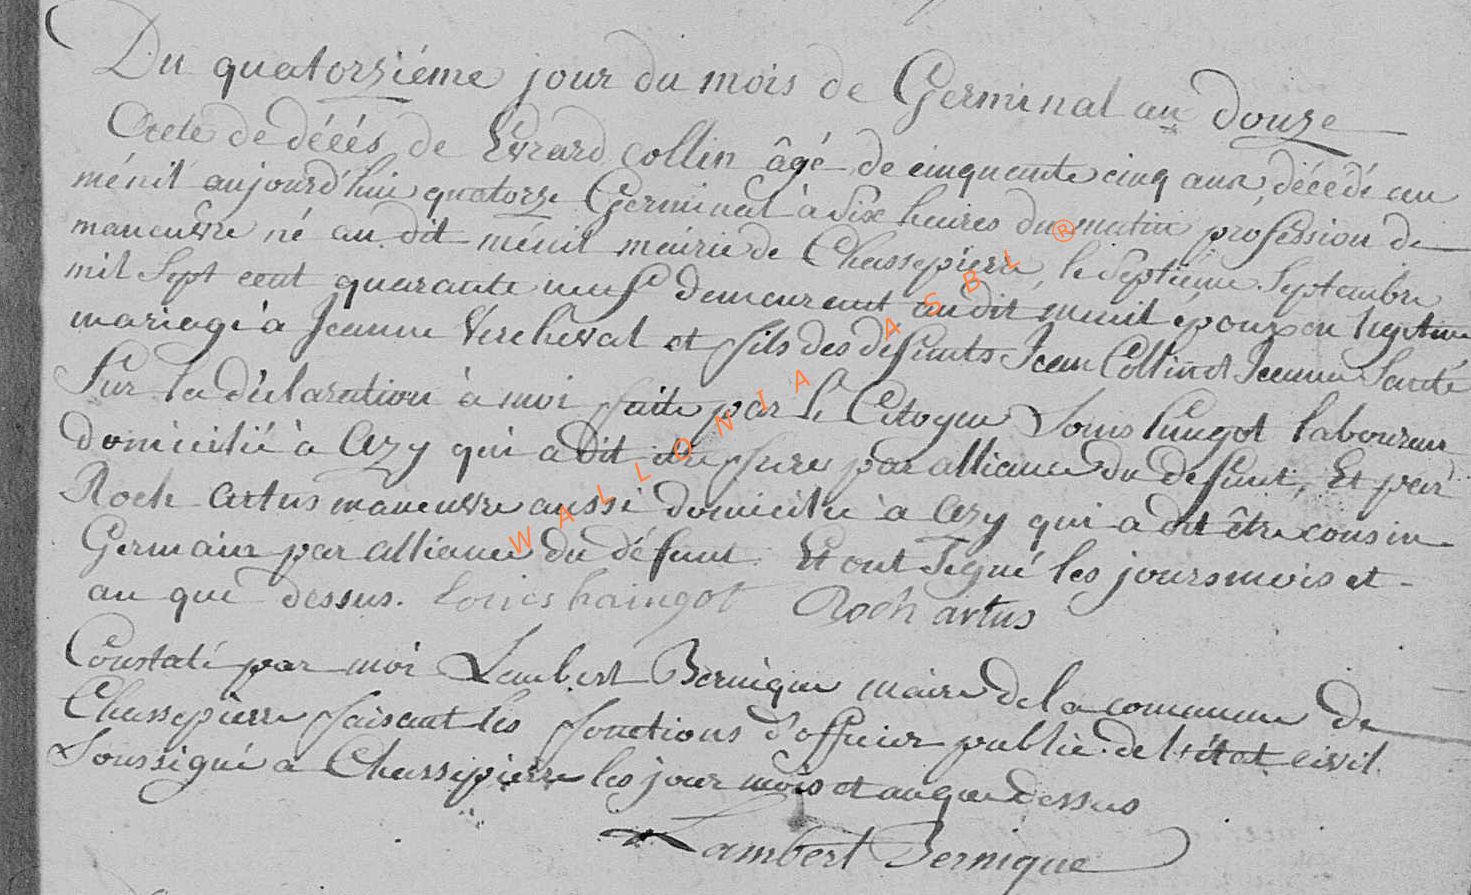 Du quatorziéme jour du mois de Germinal an douze
Acte de décés de Evrard Collin âgé de cinquante cinq ans, décédé au
ménil aujourd'hui quatorze Germinal à Six heures du matin profession de
maneuvre né au dit ménil mairie de Chassepierre, le Septieme Septembre
mil Sept cent quarante neuf demeurant audit menil époux en
mariage à Jeanne Vercheval et fils des défunts Jean Collin et Jeanne
Sur la déclaration à moi faite par le Citoyen Louis laboureur
domicilié à Azy qui a dit etre frere par alliance du defunt, Et par
Roch Artus maneuvre aussi domicilié à Azy qui a dit être cousin
Germain par alliance du défunt. Et ont Signé les jours mois et
an que dessus. Louis haingot Roch artus
Constaté par moi Lambert Bernique maire de la commune de
Chassepierre faisant les fonctions d'officier public de l'état civil
Soussigné a Chassepierre les jour mois et an que dessus
Lambert Bernique
WALLONIA ASBL ®